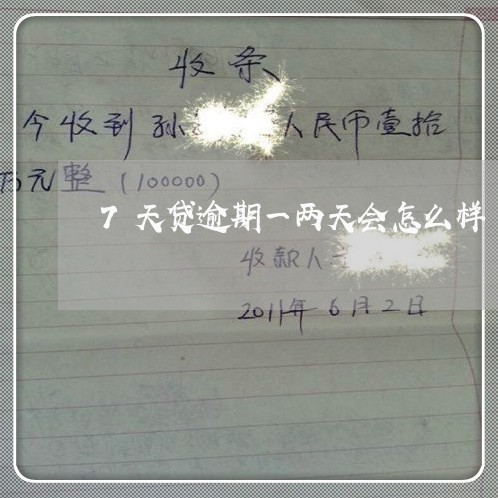 收条
今收到孙 人民币壹拾
万元整(100000)
7天贷逾期一两天会怎么样
收款人
2011年6月2日